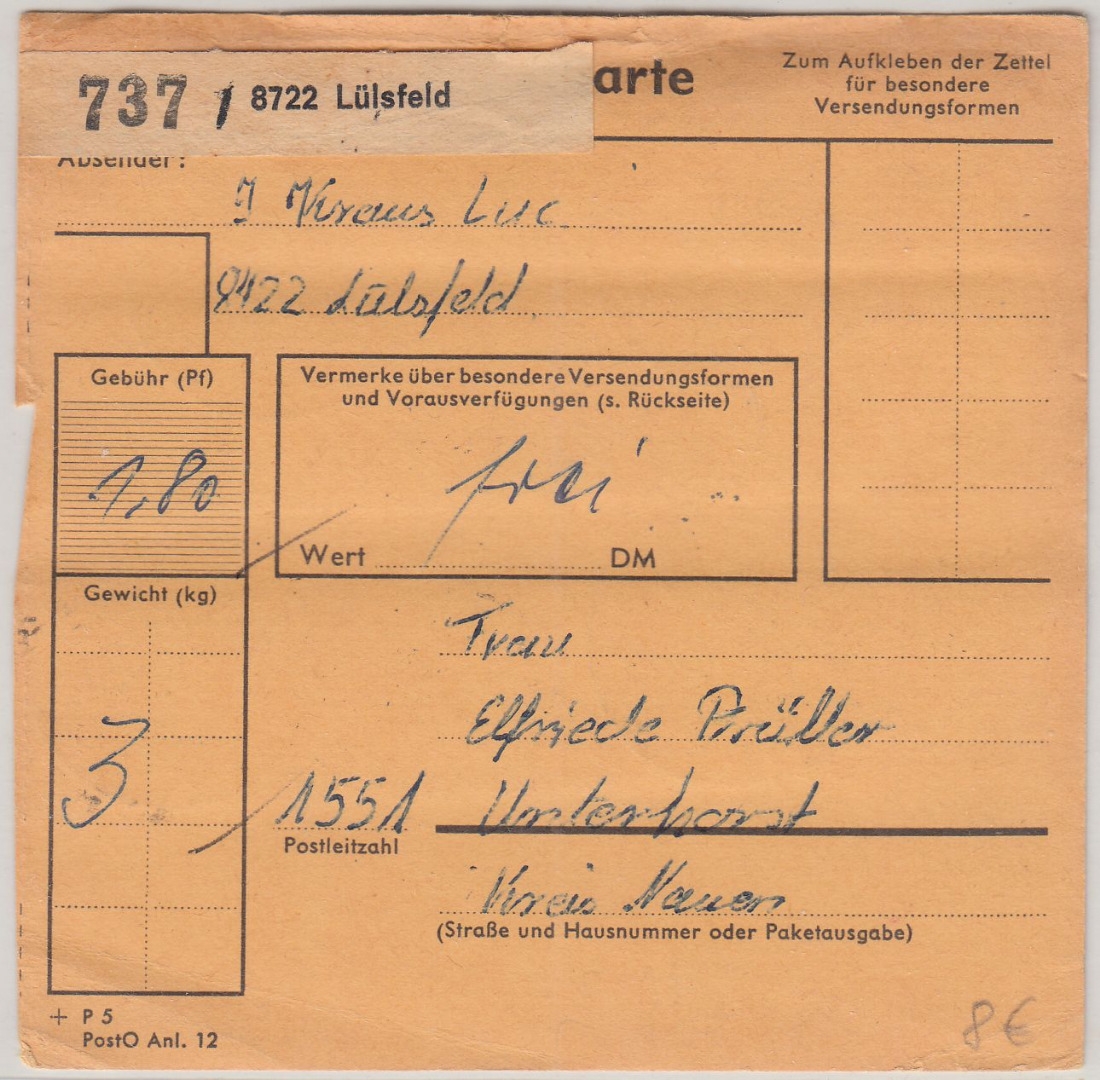 737 / 8722 Lülsfeld
arte
Zum Aufkleben der Zettel
für besondere
Versendungsformen
Absender:
J Kraus Luc
8422 Lülsfeld
Gebühr (Pf)
1,80
Vermerke über besondere Versendungsformen
und Vorausverfügungen (s. Rückseite)
frei
Wert DM
Gewicht (kg)
3
Frau
Elfriede Prüller
1551 Unterhorst
Postleitzahl
Kreis Nauen
(Straße und Hausnummer oder Paketausgabe)
+ P 5
PostO Anl. 12
8€